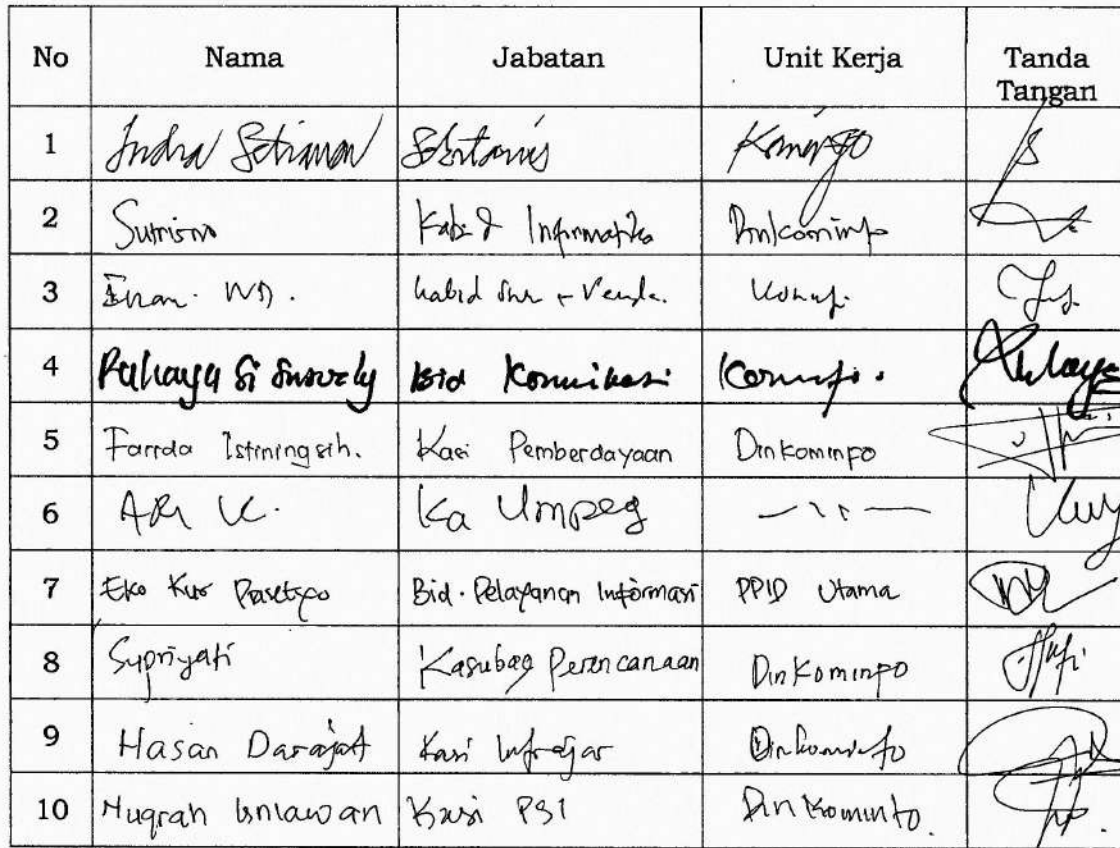 No Nama Jabatan Unit Kerja Tanda Tangan
1 Indra Setiawan Sekretaris Kominfo
2 Sutrisno Kabid Informatika Dinkominfo
3 WD. Kabid
4 Bid Komunikasi Kominfo.
5 Farida Istiningsih. Kasi Pemberdayaan Dinkominfo
6 ARI K. Ka Umpeg
7 Eko Kur Prasetyo Bid. Pelayanan Informasi PPID Utama
8 Supriyati Kasubag Perencanaan Dinkominfo
9 Hasan Darajat Kasi Dinkominfo
10 Kasi PSI Dinkominfo.